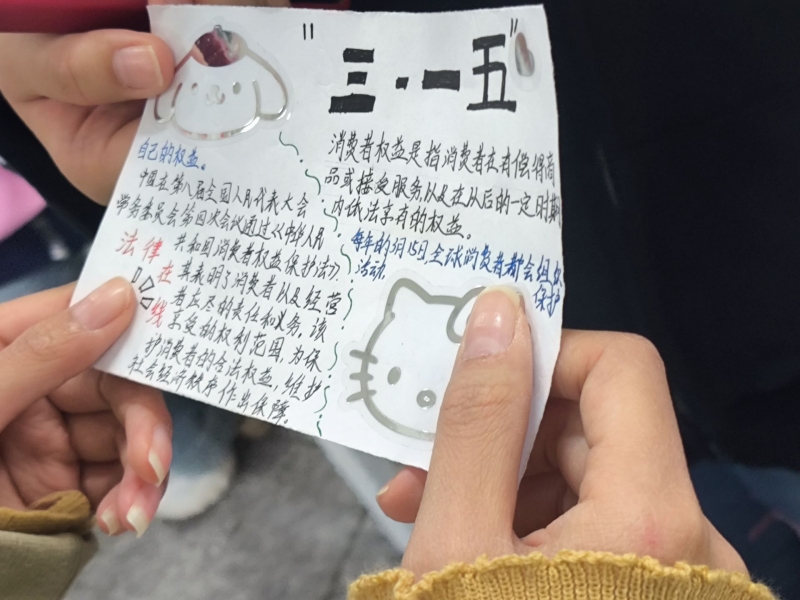 "三·一五"
消费者权益是指消费者在有偿得商
品或接受服务以及在从后的一定时期
内依法享有的权益。
每年的3月15日全球消费者都会组织
活动
保护
自己的权益。
中国在第八届全国人民代表大会
常务委员会第四次会议通过《中华人民
共和国消费者权益保护法》
其表明了消费者以及经营
者应尽的责任和义务。该
享受的权利范围,为保
护消费者的合法权益,维护
社会经济秩序作出保障。
法律
在
线